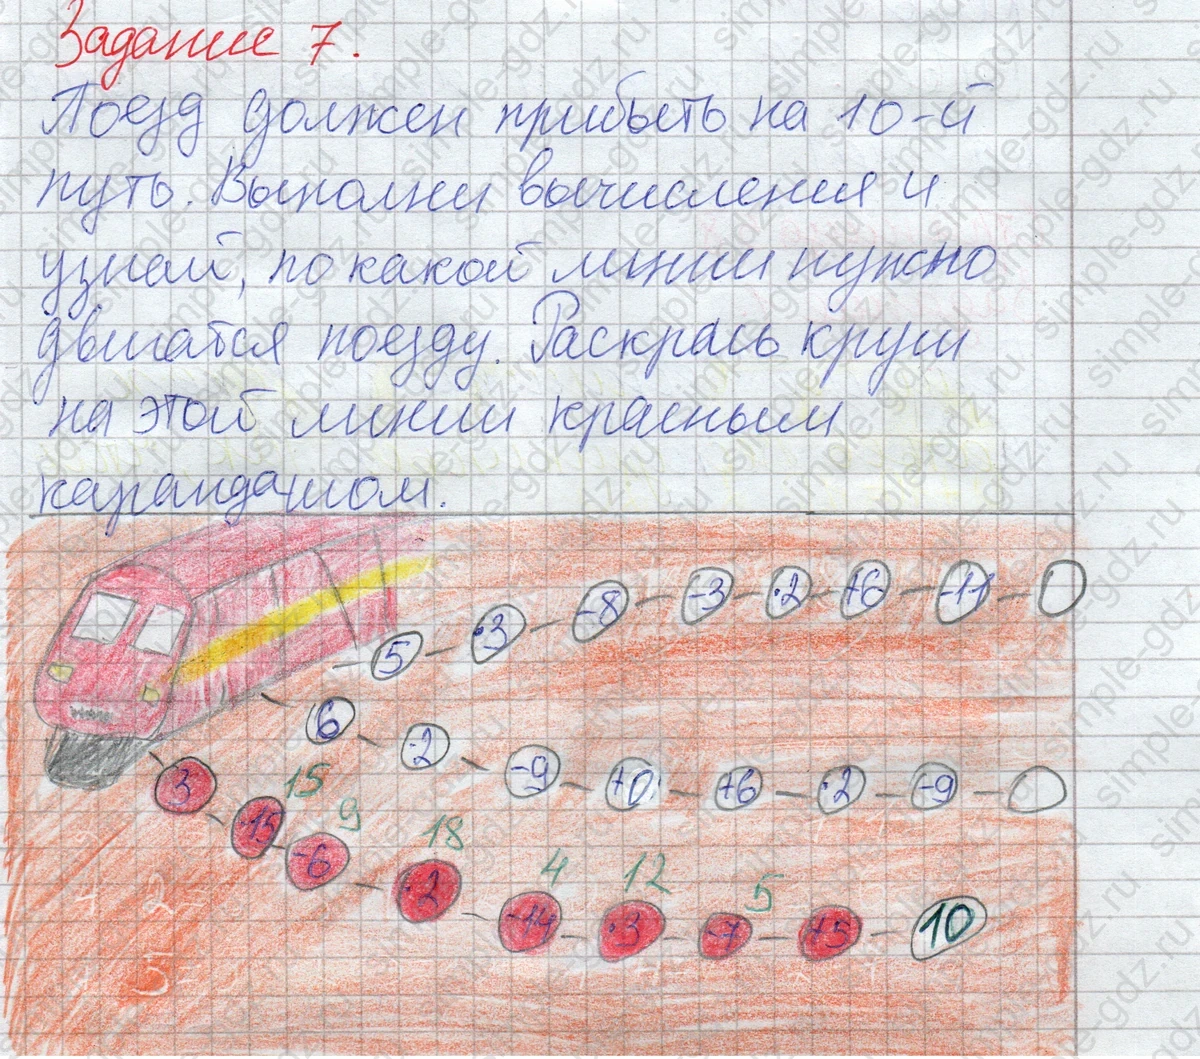 Задание 7.
Поезд должен прибыть на 10-й
путь. Выполни вычисления и
узнай, по какой линии нужно
двигатся поезду. Раскрась круги
на этой линии красным
карандашом.
5 ·3 -8 -3 ·2 +6 -11
6 ·2 -9 +0 +6 ·2 -9
15 9 18 4 12 5
3 ·15 -6 ·2 -14 ·3 -7 +5 10
simple-gdz.ru